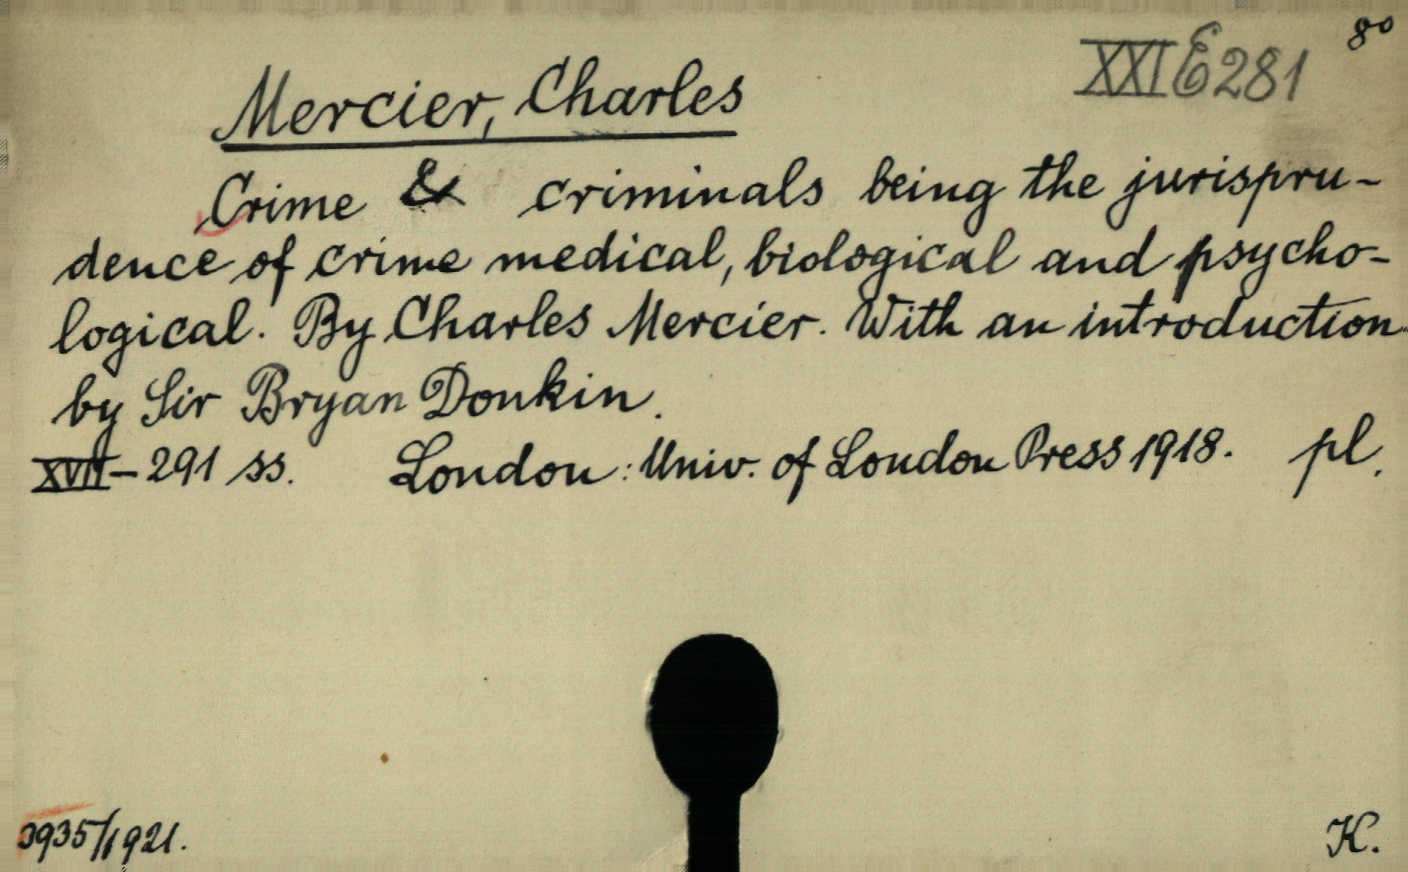 8º
XXI E 281
Mercier, Charles
Crime & criminals being the jurispru-
dence of crime medical, biological and psycho-
logical. By Charles Mercier. With an introduction
by Sir Bryan Donkin.
XVII-291 ss. London: Univ. of London Press 1918. pl.
3935/1921.
K.